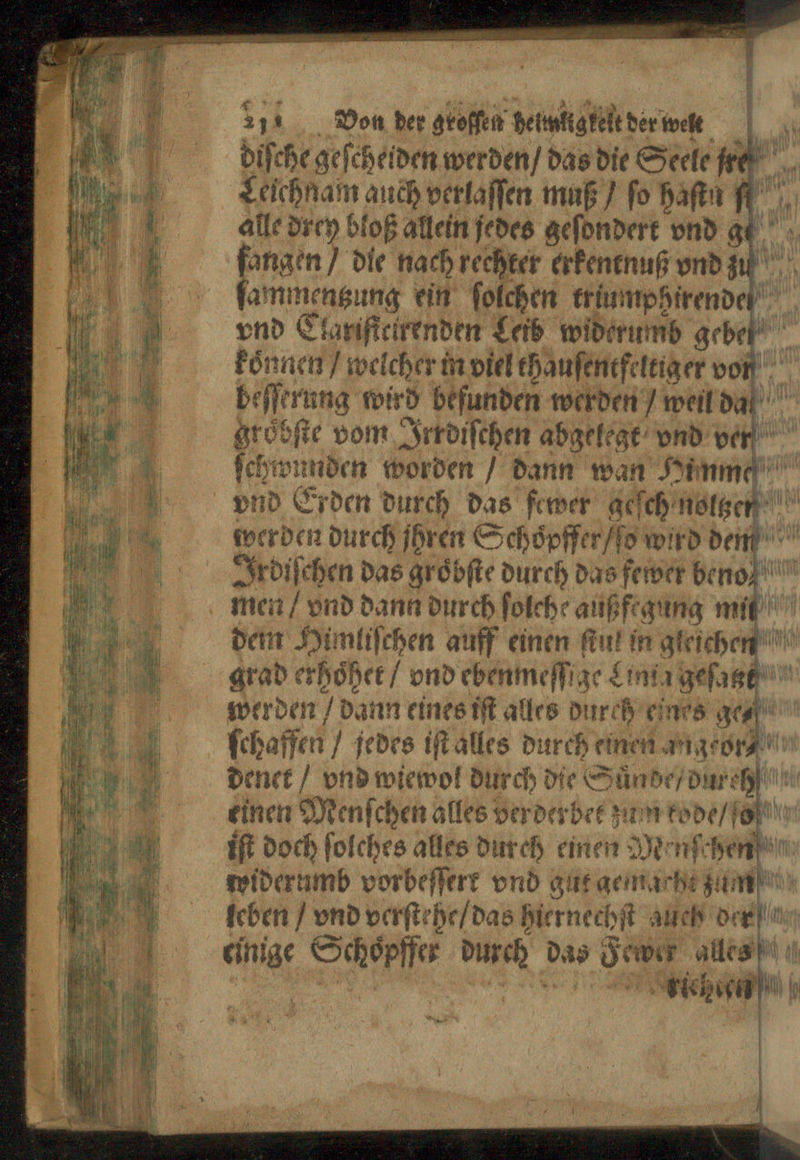 Von der groſſen heimligkeit der welt
diſche geſcheiden werden / das die Seele
Leichnam auch verlaſſen muß / ſo haſtu
alle drey bloß allein jedes geſondert vnd
fangen / die nach rechter erkentnuß vnd
ſammentzung ein ſolchen triumphirende
vnd Clarificirenden Leib widerumb gebe
koͤnnen / welcher in viel thauſentfeltiger vor
beſſerung wird befunden werden / weil da
groͤbſte vom Irrdiſchen abgelegt vnd ver
ſchwunden worden / dann wan Himme
vnd Erden durch das fewer geſchmoltzen
werden durch jhren Schoͤpffer / ſo wird dem
Irdiſchen das groͤbſte durch das fewer beno⸗
men / vnd dann durch ſolche außfegung mit
dem Himliſchen auff einen ſtul in gleichen
grad erhoͤhet / vnd ebenmeſſige Linia geſatzt
werden / dann eines iſt alles durch eines ge⸗
ſchaffen / jedes iſt alles durch einen angeor⸗
denet / vnd wiewol durch die Suͤnde / durch
einen Menſchen alles verderbet zum tode / ſo
iſt doch ſolches alles durch einen Menſchen
widerumb vorbeſſert vnd gut gemacht zum
leben / vnd verſtehe / das hiernechſt auch der
einige Schoͤpffer durch das Fewer alles
richten